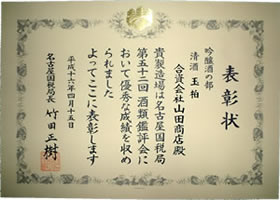 表彰状
吟醸酒の部
清酒 玉柏
合資会社山田商店殿
貴製造場は名古屋国税局
第五十二回酒類鑑評会に
おいて優秀な成績を収め
られました
よってここに表彰します
平成十六年四月十五日
名古屋国税局長 竹田正樹